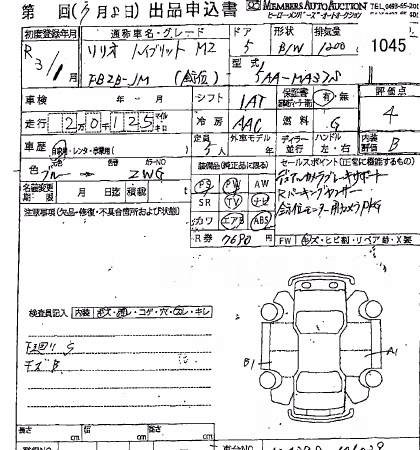 第 回 (3月8日) 出品申込書 MEMBERS AUTO AUCTION TEL 0493-65-20
ヒーローメンバーズ・オートオークション FAX 0493-65
初度登録年月 通称車名・グレード ドア 形状 排気量
R 3/1 ソリオ ハイブリット MZ 5 B/W 1200 1045
型式
FBZB-JM (全方位) 5AA-MA37S
車検 年 月 シフト IAT 保証書 有・無 評価点
走行 2万0千125 マイル キロ 冷房 AAC 燃料 G 4
車歴 自家用・レンタ・事業用( ) 定員 5人 外車モデル 年 ディーラー 並行 ハンドル 左・右 内装評価 B
色 ブルー → 色番 カラーNO ZWG 装備品(純正品に限る) セールスポイント(正常に機能するもの)
名義変更期限 月 日迄 積載 t PS PW AW
注意事項(欠品・修復・不具合箇所および状態) SR TV ナビ
カワ エアB ABS
R券 7690 円 FW キズ・ヒビ割・リペア跡・X要
検査員記入 内装 キズ・汚れ・コゲ・穴・スレ・キレ
下廻り S
キズ B
B1 A1
長さ cm 幅 cm 高さ cm